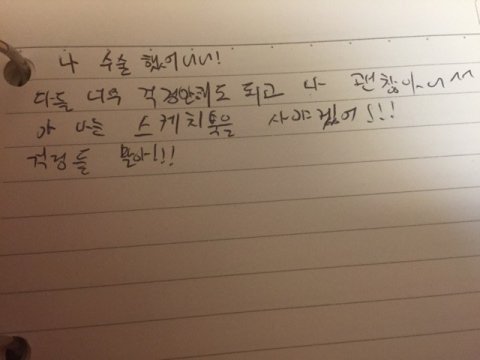 나 수술 했어!!!
다들 너무 걱정안해도 되고 나 괜찮아~^^
아 나는 스케치북을 사야겠어!!!
걱정들 말아!!!